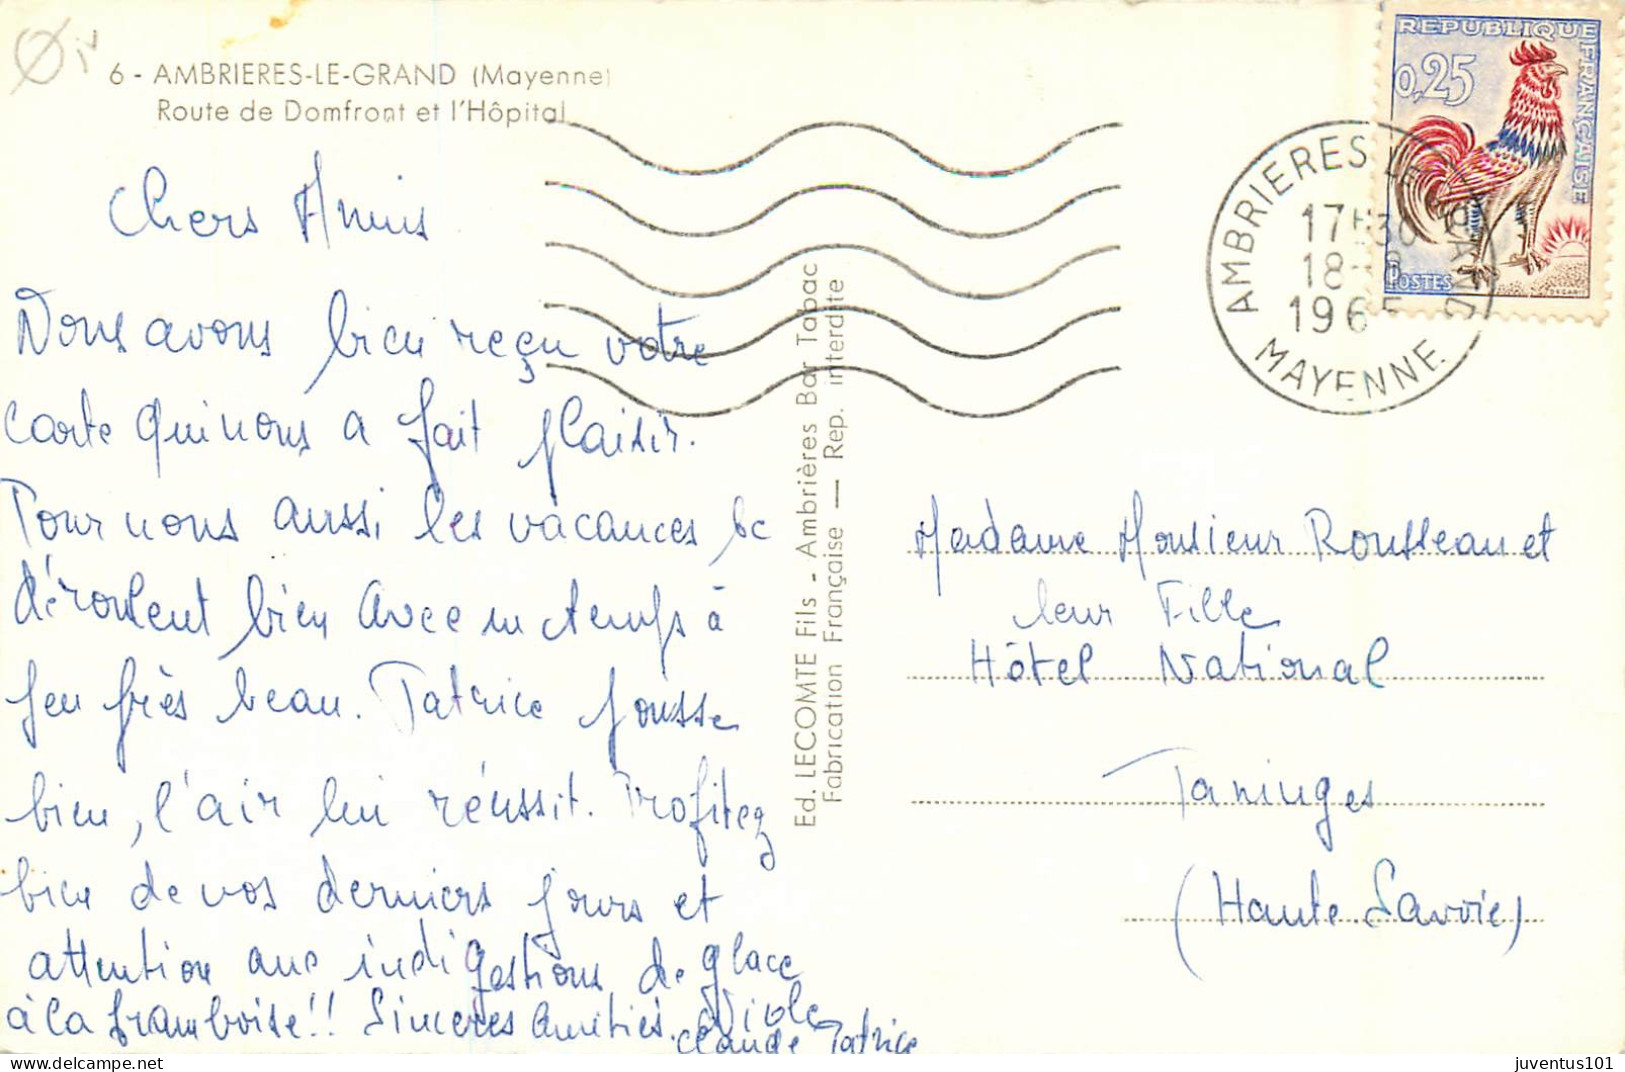 6 - AMBRIERES-LE-GRAND (Mayenne)
Route de Domfront et l'Hôpital
Chers Amis
Nous avons bien reçu votre
carte qui nous a fait plaisir.
Pour nous aussi les vacances se
déroulent bien avec un temps à
peu près beau. Patrice pousse
bien, l'air lui réussit. Profitez
bien de vos derniers jours et
attention aux indigestions de glace
à la framboise!! Sincères Amitiés.
Claude Patrice
Ed. LECOMTE Fils - Ambrières Bar Tabac
Fabrication Française — Rep. interdite
REPUBLIQUE FRANÇAISE
0,25
POSTES
AMBRIERES LE GRAND
17H30
18-8
1965
MAYENNE
Madame Monsieur Rousseau et
leur Fille
Hôtel National
Taninges
(Haute Savoie)
juventus101